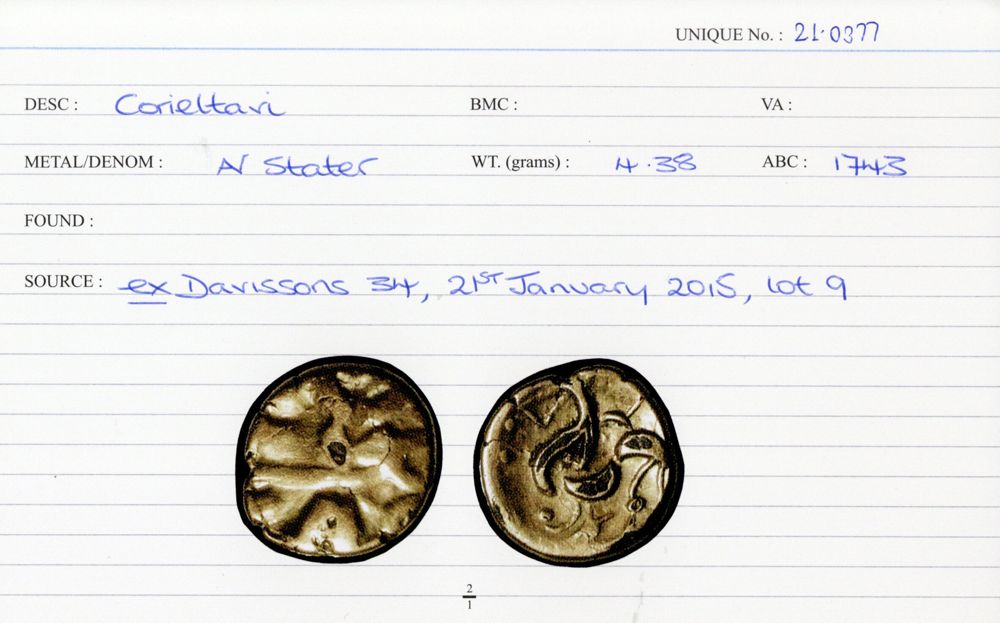 UNIQUE No. : 21.0377
DESC : Corieltavi BMC : VA :
METAL/DENOM : AV Stater WT. (grams) : 4.38 ABC : 1743
FOUND :
SOURCE : ex Davissons 34, 21ST January 2015, lot 9
2
1